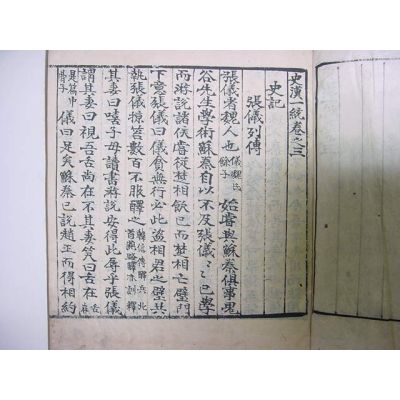 史漢一統卷之三
史記
張儀列傳
張儀者魏人也儀魏氏餘子始嘗與蘇秦俱事鬼
谷先生學術蘇秦自以不及張儀〻〻已學
而游說諸侯嘗從楚相飲已而楚相亡璧門
下意張儀曰儀貧無行必此盗相君之璧共
執張儀掠笞數百不服醳之韓信傳醳兵北首燕路醳亦訓釋
其妻曰嘻子毋讀書游說安得此辱乎張儀
謂其妻曰視吾舌尚在不其妻笑曰舌在舌在
是篇中骨子儀曰足矣蘇秦已說趙王而得相約